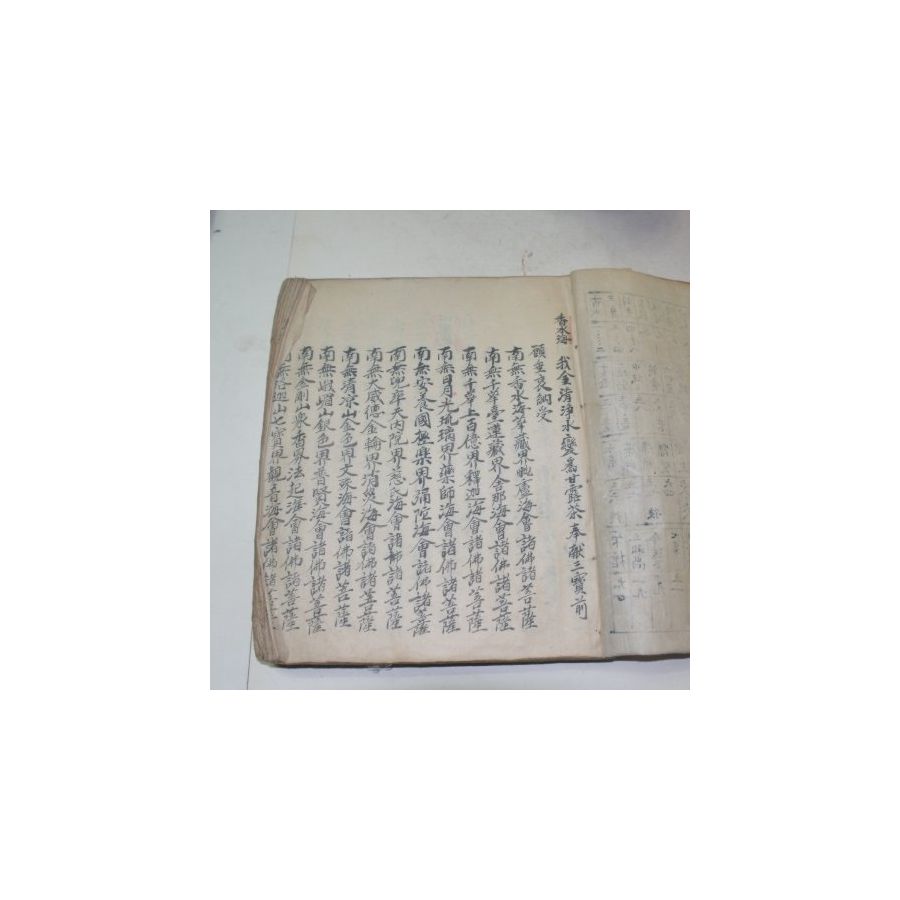 香水海
我今清淨水變爲甘露茶奉献三寶前
願垂哀納受
南無香水海華藏界毗盧海會諸佛諸菩薩
南無千華臺蓮藏界舍那海會諸佛諸菩薩
南無千華上百億界釋迦海會諸佛諸菩薩
南無日月光琉璃界藥師海會諸佛諸菩薩
南無安養國極樂界彌陀海會諸佛諸菩薩
南無兜率天內院界慈氏海會諸佛諸菩薩
南無大威德金輪界消災海會諸佛諸菩薩
南無清凉山金色界文殊海會諸佛諸菩薩
南無峨嵋山銀色界普賢海會諸佛諸菩薩
南無金剛山衆香界法起海會諸佛諸菩薩
南無洛迦山七寶界觀音海會諸佛諸菩